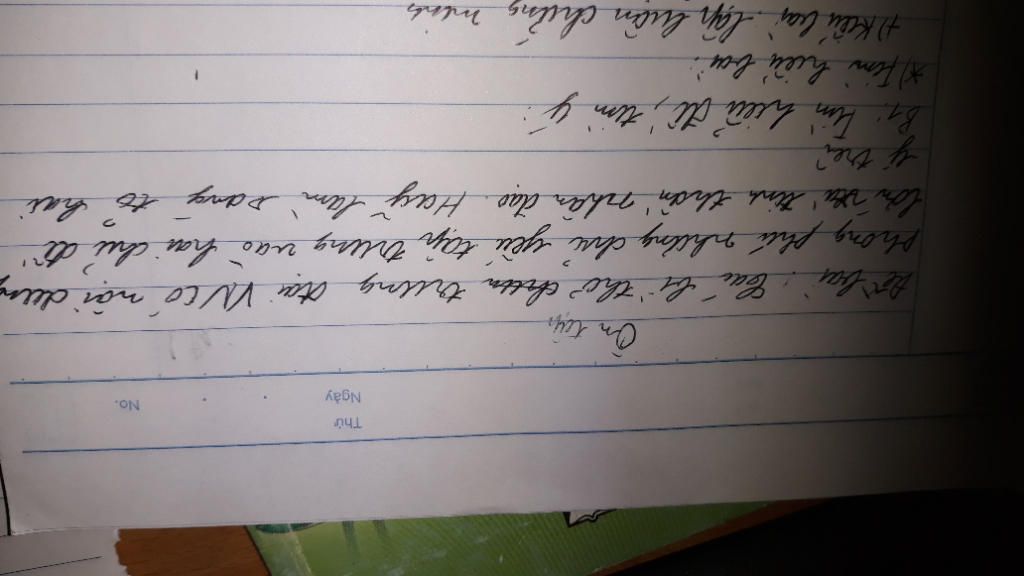 Thứ
Ngày
No.
Ôn tập
Đề bài: Các bài thơ chữ trung đại VN có nội dung
phong phú nhưng chủ yếu tập trung vào hai chủ đề
lớn tinh thần nhân đạo. Hãy làm sáng tỏ hai
ý trên
B1: Tìm hiểu đề, tìm ý:
*) Tìm hiểu bài:
+) Kiểu bài: lập luận chứng minh